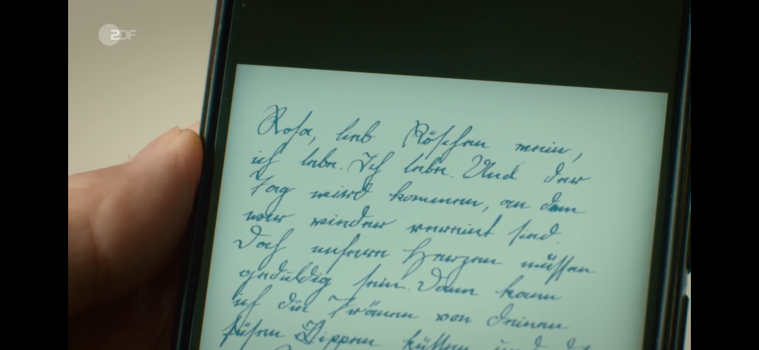 ZDF
Rosa, lieb Röschen mein,
ich lebe. Ich lebe. Und der
Tag wird kommen, an dem
wir wieder vereint sind.
Doch unsere Herzen müssen
geduldig sein. Dann kann
ich die Tränen von deinen
süßen Lippen küssen und